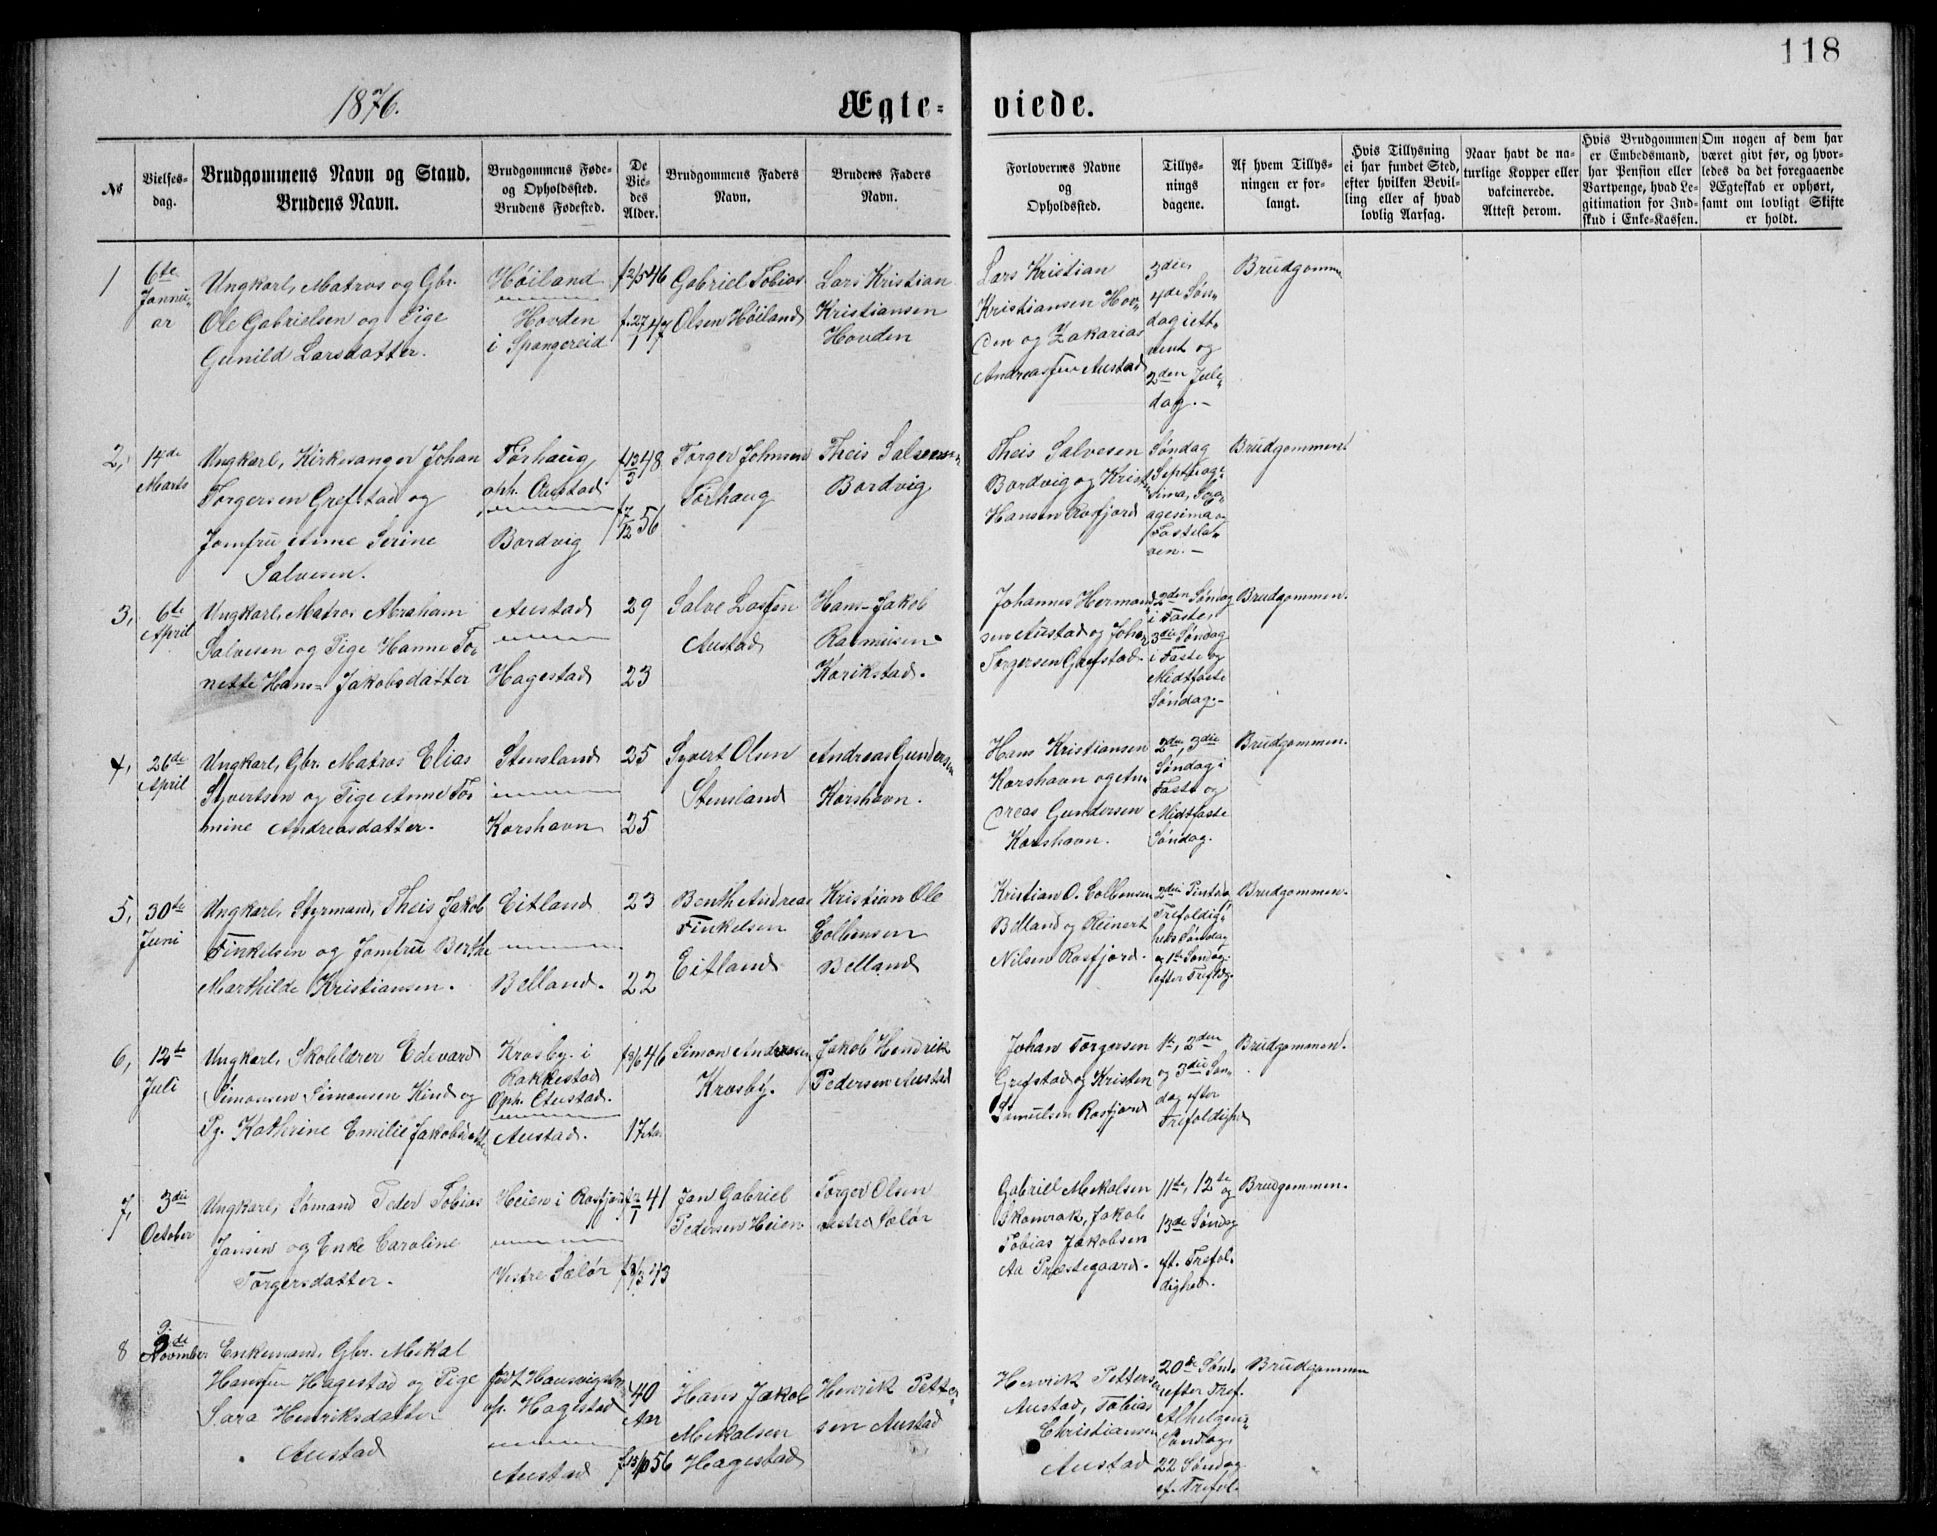 118
1876.
Ægte-viede.
No
Vielses-
dag.
Brudgommens Navn og Stand.
Brudens Navn.
Brudgommens Føde-
og Opholdssted.
Brudens Fødested.
De
Vie-
des
Alder.
Brudgommens Faders
Navn.
Brudens Faders
Navn.
Forlovernes Navne
og
Opholdssted.
Tillys-
nings
dagene.
Af hvem Tillys-
ningen er for-
langt.
Hvis Tillysning
ei har fundet Sted,
efter hvilken Bevil-
ling eller af hvad
lovlig Aarsag.
Naar havt de na-
turlige Kopper eller
vakcinerede.
Attest derom.
Hvis Brudgommen
er Embedsmand,
har Pension eller
Vartpenge, hvad Le-
gitimation for Ind-
skud i Enke-Kassen.
Om nogen af dem har
været givt før, og hvor-
ledes da det foregaaende
Ægteskab er ophørt,
samt om lovligt Skifte
er holdt.
1
6te
Januu-
ar
Ungkarl, Matros og Gbr.
Ole Gabrielsen og Pige
Gunild Larsdatter.
Høiland
Hovden
i Spangereid
f 2/5 46
f. 27/1 47
Gabriel Tobias
Olsen Høiland
Lars Kristian
Kristiansen
Hovden
Lars Kristian
Kristiansen Hov-
den og Zakarias
Andreassen Austad
3die,
4de Søn-
dag i Ad-
vent og
2den Jule-
dag.-
Brudgomm
2,
14de
Marts
Ungkarl, Kirkesanger Johan
Torgersen Grefstad og
Jomfru Anne Serine
Salvesen.
Tørhaug
oph. Austad
Bordvig
f 13/3 48
f 7/12 56
Torger Johnsen
Tørhaug
Theis Salvesen
Bordvig
Theis Salvesen
Bordvig og Krist.
Hansen Rosfjord
Søndag
Septuage-
sima, Sex-
agesima og
Fastela-
ven.-
Brudgommen.
3,
6te
April
Ungkarl, Matros Abraham
Salvesen og Pige Hanne To-
nette Hans-Jakobsdatter
Austad
Hagestad
29
23
Salve Lassen
Austad
Hans-Jakob
Rasmusen
Korikstad.
Johannes Herman-
sen Austad og Johan
Torgersen Grefstad.
2den Søndag
i Faste,
3die Søndag
i Faste og
Midtfaste
Søndag.-
Brudgommen.
4,
26de
April
Ungkarl, Gbr. Matros Elias
Syvertsen og Pige Anne Tor-
mine Andreasdatter.
Stensland
Korshavn
25
25
Syvert Olsen
Stensland
Andreas Gundersen
Korshavn.
Hans Kristiansen
Korshavn og An-
dreas Gundersen
Korshavn.
2den, 3die
Søndag i
Faste og
Midtfaste
Søndag.
Brudgommen.
5,
30te
Juni
Ungkarl, Styrmand, Theis Jakob
Finkelsen og Jomfru Berthe
Marthilde Kristiansen.
Eitland
Belland.
23
22
Benth Andreas
Finkelsen
Eitland
Kristian Ole
Colbensen
Belland
Kristian O. Colbensen
Belland og Reinert
Nilsen Rosfjord.
2den Pintsed.
Trefoldig-
heds Søndag
og 1ste Søndag
efter Trefoldg.
Brudgommen.
6,
12te
Juli
Ungkarl, Skolelærer Edevard
Simonsen Simonsen Kind og
Pg. Kathrine Emilie Jakobsdatter
Krosby i
Rakkestad
Oph. Austad.
Austad.
f 3/6 46
17 Aar
Simon Andreasen
Krosby.
Jakob Hendrik
Pedersen Austad
Johan Torgersen
Grefstad og Kristen
Samulsen Rosfjord
1ste, 2den
og 3die Søn-
dag efter
Trefoldighed
Brudgommen.
7,
3die
October
Ungkarl, Sømand Peder Tobias
Jansen og Enke Caroline
Torgersdatter.
Heien i Rosfjord
Vestre Sælør
41
f 8/3 43
Jan Gabriel
Pedersen Heien
Torger Olsen
vestre Sælør
Gabriel Mekalsen
Skomrak, Jakob
Tobias Jakobsen
Aa Præstegaard.
11te, 12te og
13de Søndag
eft. Trefol-
dighed.
Brudgommen.
8
9.
November
Enkemand, Gbr. Mekal
Hansen Hagestad og Pige
Sara Henriksdatter
Austad
op. Hagestad
Austad
40
Aar
56
Hans Jakob
Mekalsen
Hagestad
Henrik Petter-
sen Austad
Henrik Petterse
Austad, Tobias
Christiansen
Austad
20de Sønd.
efter Tref.
Alhelgens
Søndag,
22 Søndag
ef. Trefol.
Brudgommen